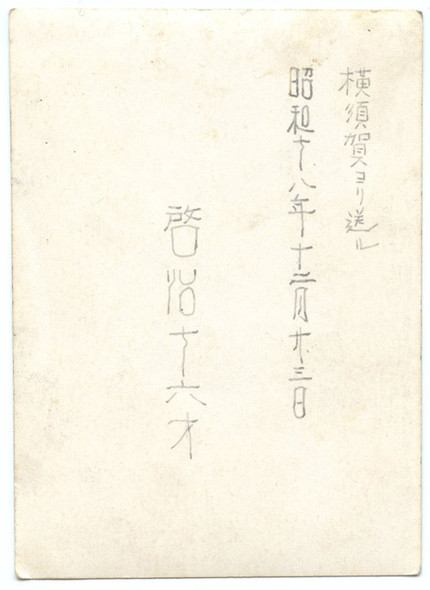 横須賀ヨリ送ル
昭和十八年十二月廿三日
啓治十六才